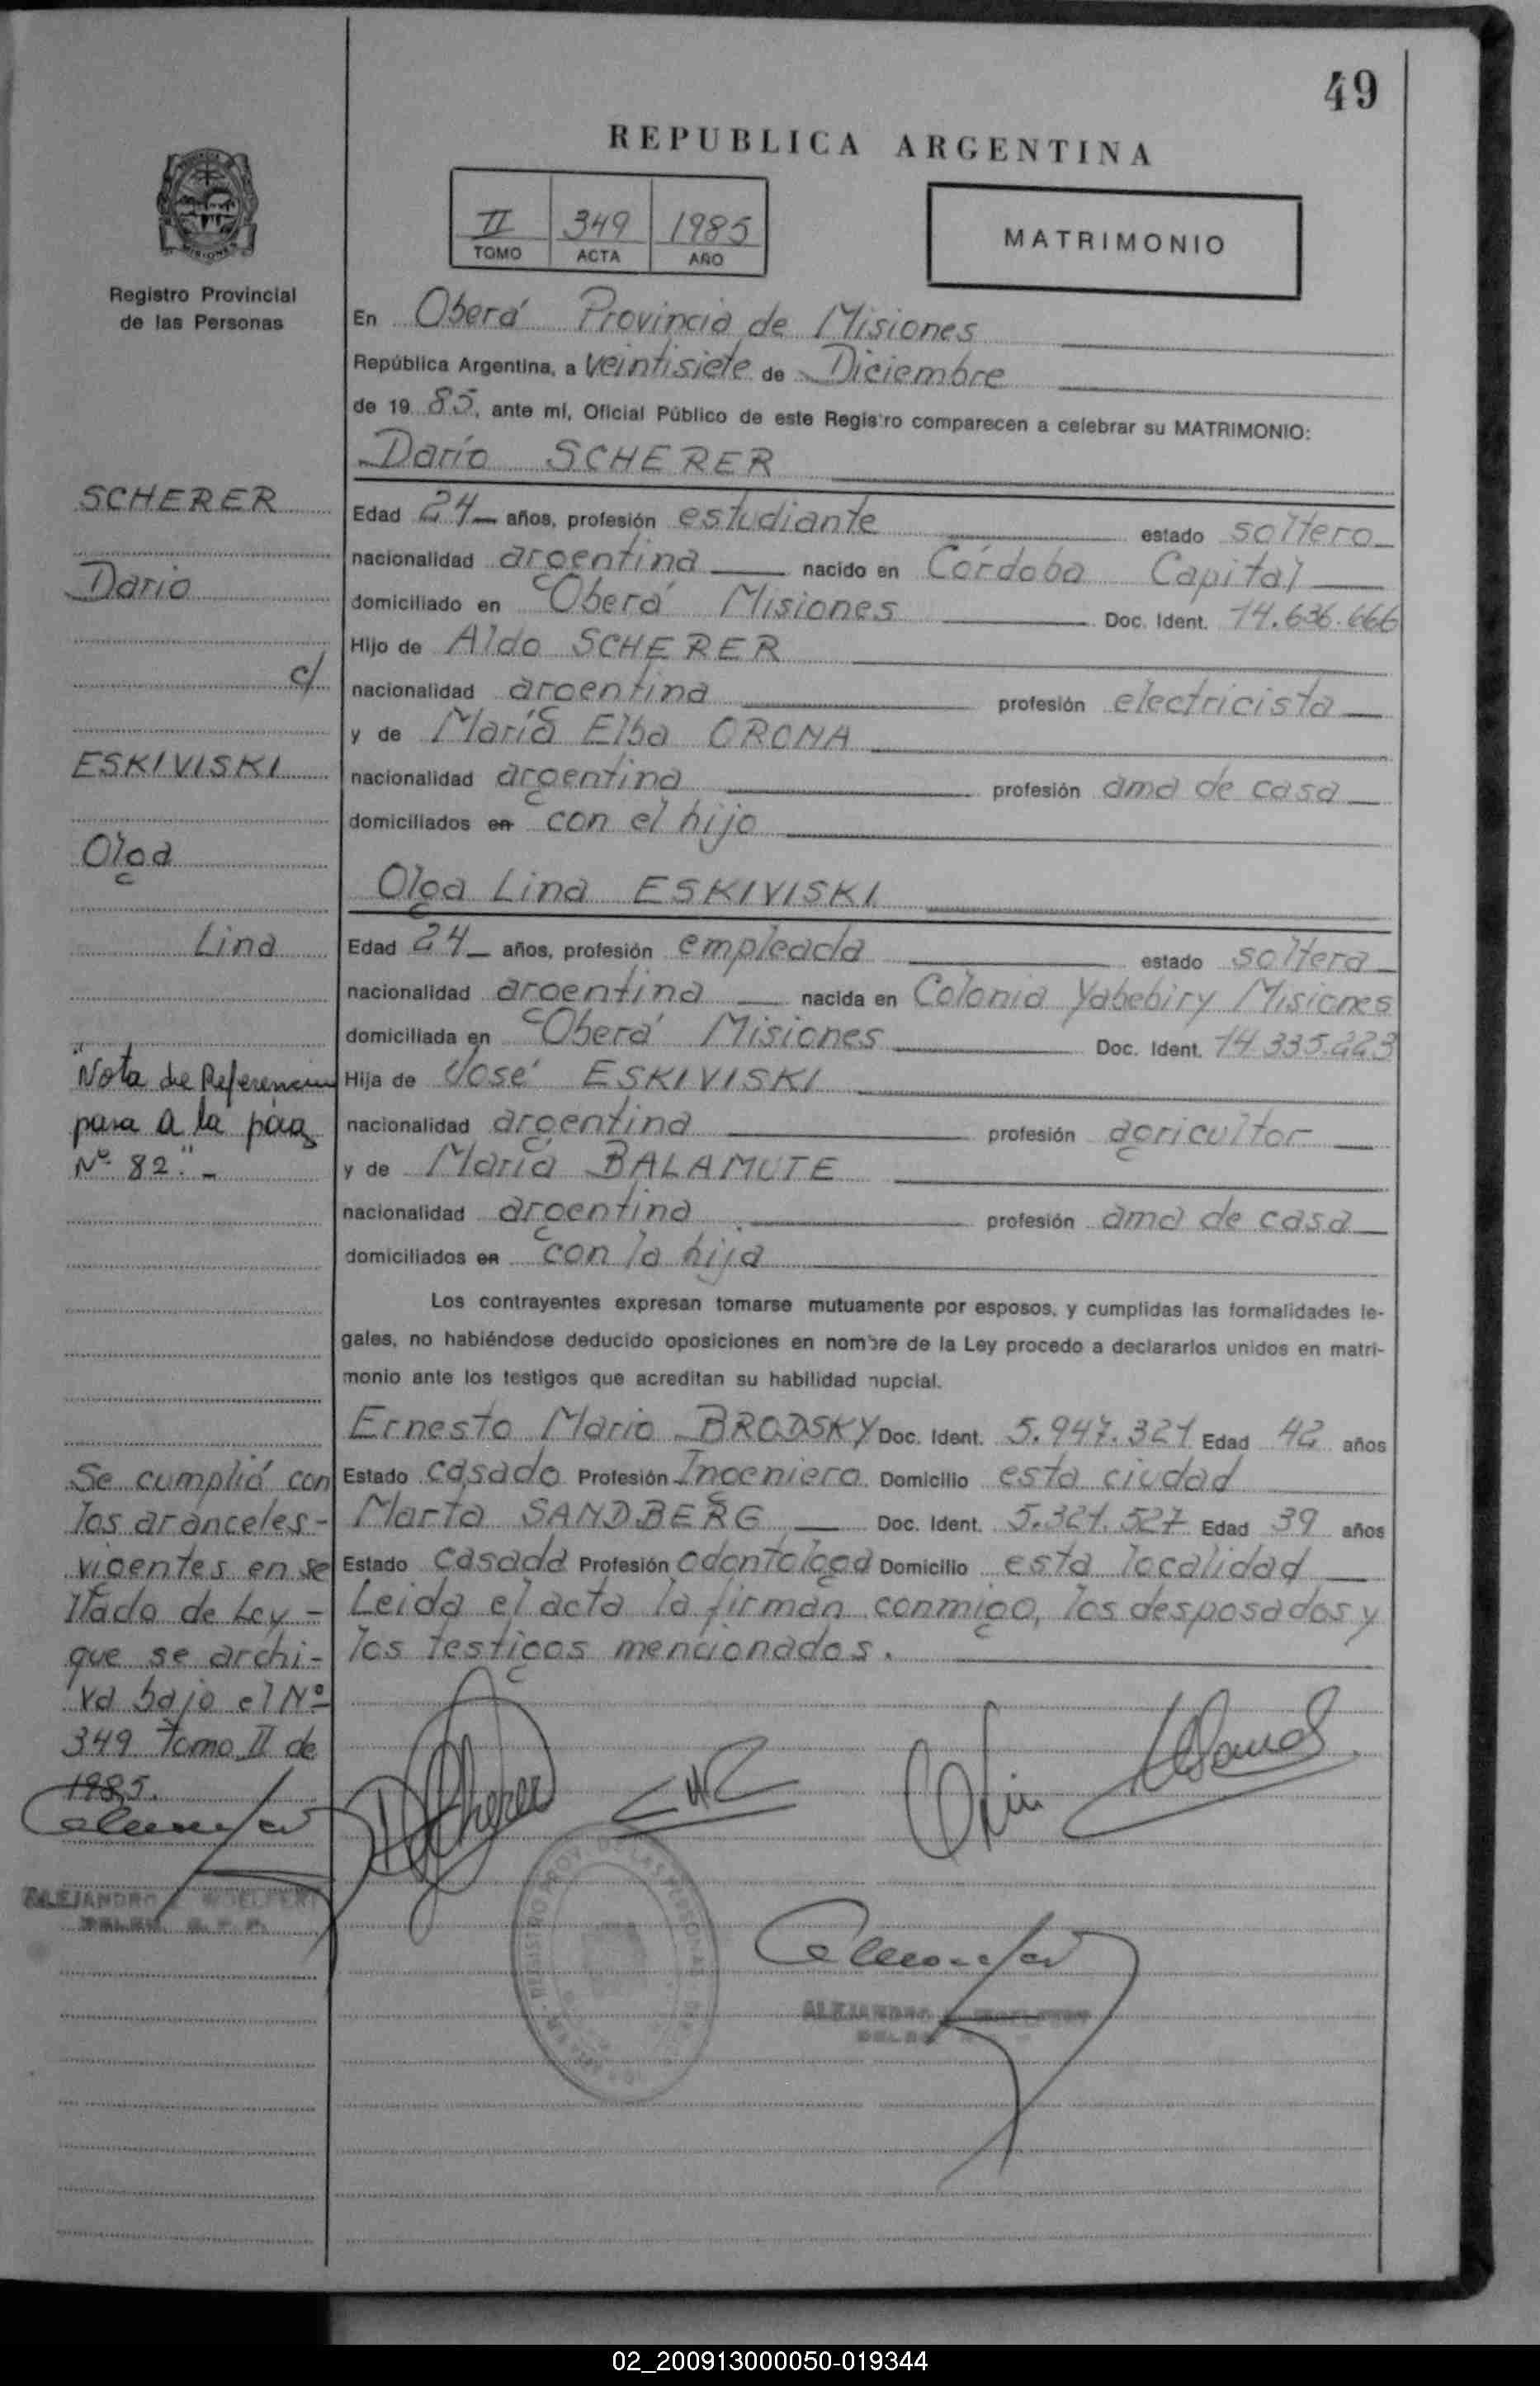 49
REPUBLICA ARGENTINA
II 349 1985
TOMO ACTA AÑO
MATRIMONIO
Registro Provincial
de las Personas
En Oberá Provincia de Misiones
República Argentina, a veintisiete de Diciembre
de 19 85, ante mí, Oficial Público de este Registro comparecen a celebrar su MATRIMONIO:
Darío SCHERER
SCHERER
Dario
c/
ESKIVISKI
Olga
Lina
Edad 24 años, profesión estudiante estado soltero
nacionalidad argentina nacido en Córdoba Capital
domiciliado en Oberá Misiones Doc. Ident. 14.636.666
Hijo de Aldo SCHERER
nacionalidad argentina profesión electricista
y de María Elba ORONA
nacionalidad argentina profesión ama de casa
domiciliados en con el hijo
Olga Lina ESKIVISKI
Edad 24 años, profesión empleada estado soltera
nacionalidad argentina nacida en Colonia Yabebiry Misiones
domiciliada en Oberá Misiones Doc. Ident. 14.335.223
Hija de José ESKIVISKI
nacionalidad argentina profesión agricultor
y de María BALAMUTE
nacionalidad argentina profesión ama de casa
domiciliados en con la hija
"Nota de Referencia
pasa a la pág
Nº 82".-
Los contrayentes expresan tomarse mutuamente por esposos, y cumplidas las formalidades le-
gales, no habiéndose deducido oposiciones en nombre de la Ley procedo a declararlos unidos en matri-
monio ante los testigos que acreditan su habilidad nupcial.
Ernesto Mario BRODSKY Doc. Ident. 5.947.321 Edad 42 años
Estado casado Profesión Ingeniero Domicilio esta ciudad
Marta SANDBERG Doc. Ident. 5.321.527 Edad 39 años
Estado casada Profesión odontologa Domicilio esta localidad
Leida el acta la firman conmigo, los desposados y
los testigos mencionados.
Se cumplió con
los aranceles-
vigentes en se
llado de Ley-
que se archi-
va bajo el Nº
349 Tomo II de
1985.
ALEJANDRO
ALEJANDRO
02_200913000050-019344